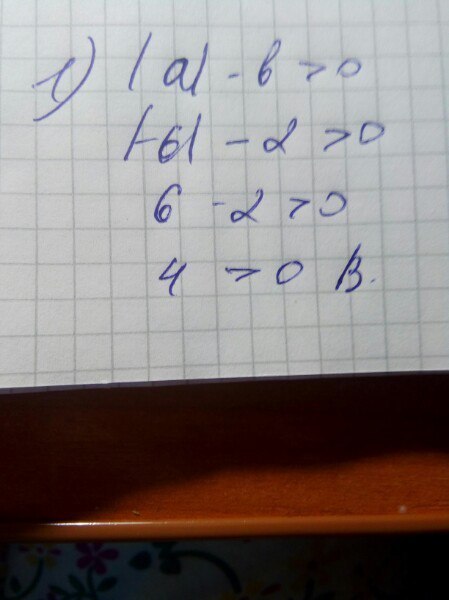 1) |a| - в > 0
|-6| - 2 > 0
6 - 2 > 0
4 > 0 В.